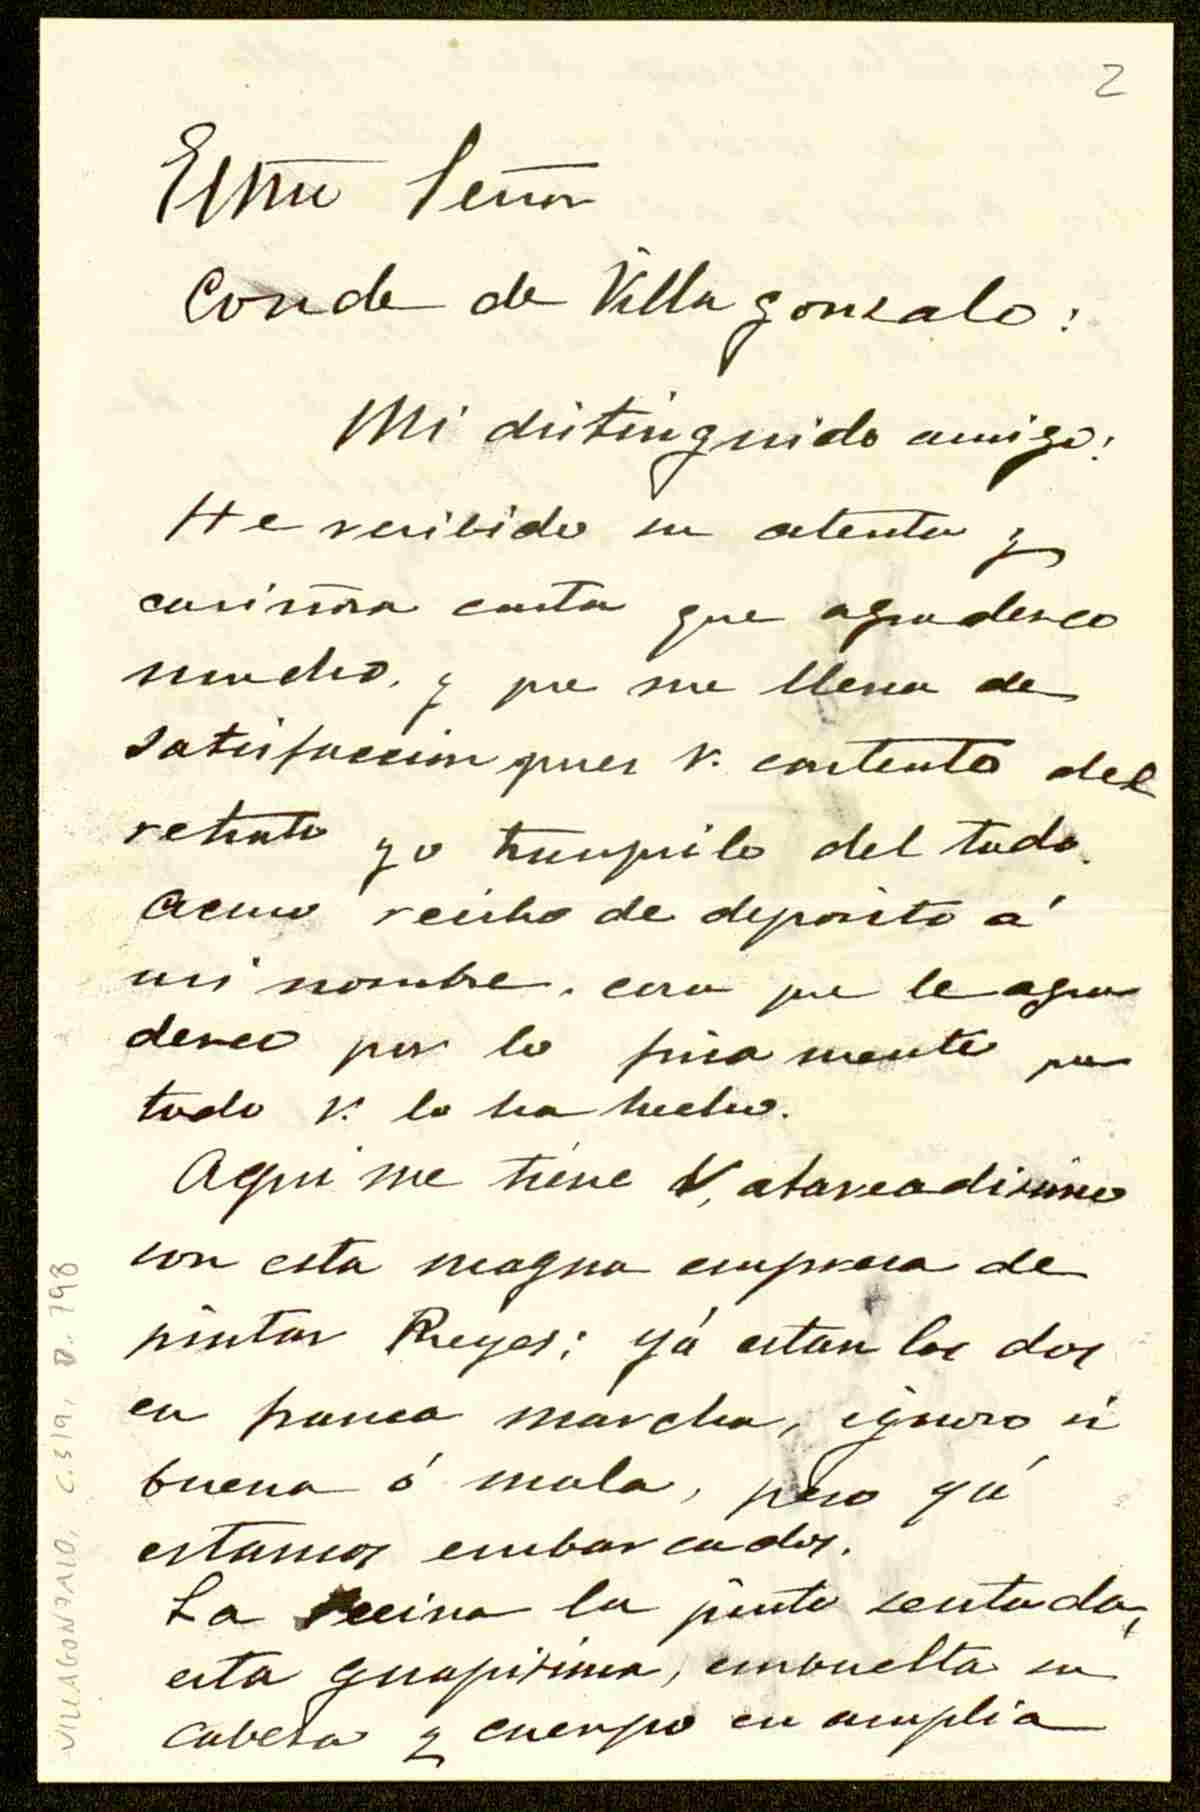 2
Exmo Señor
Conde de Villagonzalo:
Mi distinguido amigo:
He recibido su atenta y
cariñosa carta que agradezco
mucho, y que me llena de
satisfaccion pues V. contento del
retrato yo tranquilo del todo.
Acuso recibo de deposito á
mi nombre. cosa que le agra
dezco por lo fina mente que
todo V. lo ha hecho.
Aqui me tiene V, atareadisimo
con esta magna empresa de
pintar Reyes; yá estan los dos
en franca marcha, ignoro si
buena ó mala, pero yá
estamos embarcados.
La reina la pinto sentada,
esta guapisima, envuelta su
cabeza y cuerpo en amplia
VILLAGONZALO, C. 319, D. 798